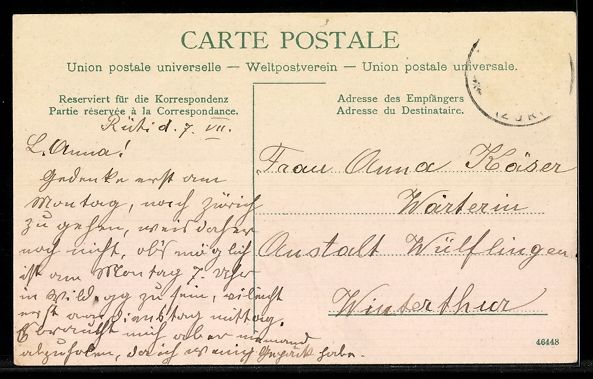 CARTE POSTALE
Union postale universelle — Weltpostverein — Union postale universale.
Reserviert für die Korrespondenz
Partie réservée à la Correspondance.
Adresse des Empfängers
Adresse du Destinataire.
Rüti d. 7. VII.
L. Anna!
Gedenke erst am
Montag, nach Zürich
zu gehen, weis daher
noch nicht, ob's möglich
ist am Montag 7 Uhr
in Wildegg zu sein, vileicht
erst am Dienstag mittag.
Es braucht mich aber niemand
abzuholen, da ich wenig Gepäck habe.
Frau Anna Käser
Wärterin
Anstalt Wülflingen
Winterthur
46448